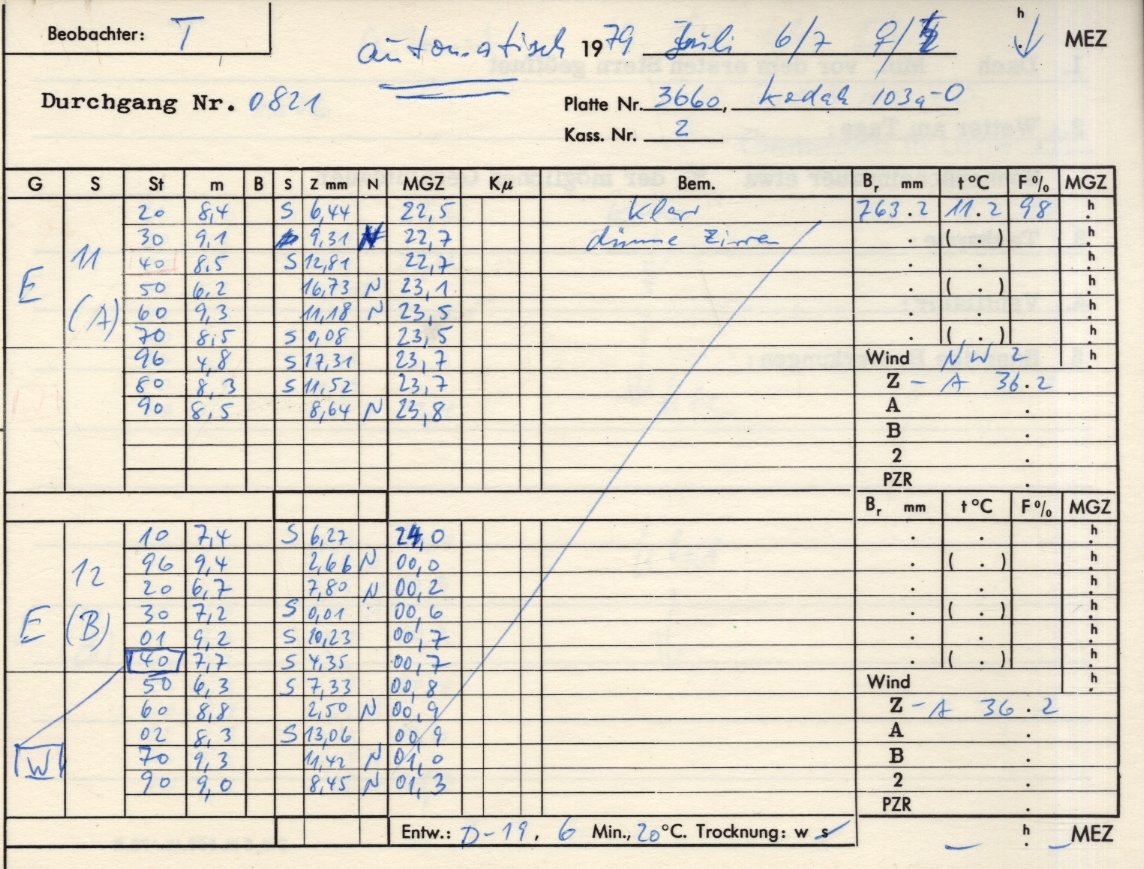 Beobachter: T
automatisch 1979 Juli 6/7 h MEZ
Durchgang Nr. 0821
Platte Nr. 3660, Kodak 103a-O
Kass. Nr. 2
G S St m B S Z mm N MGZ Kμ Bem. Br mm t °C F % MGZ
20 8,4 S 6,44 22,5 klar 763.2 11.2 98 h
30 9,1 9,31 N 22,7 dünne Zirren . ( . ) h
E 11 (A)
40 8,5 S 12,81 22,7 . . h
50 6,2 16,73 N 23,1 . ( . ) h
60 9,3 11,18 N 23,5 . . h
70 8,5 S 0,08 23,5 . ( . ) h
96 4,8 S 17,31 23,7 Wind NW 2 h
80 8,3 S 11,52 23,7 Z - A 36.2
90 8,5 8,64 N 23,8 A .
B .
2 .
PZR .
Br mm t °C F % MGZ
10 7,4 S 6,27 24,0 . . h
96 9,4 2,66 N 00,0 . ( . ) h
E 12 (B)
20 6,7 7,80 N 00,2 . . h
30 7,2 S 0,01 00,6 . ( . ) h
01 9,2 S 20,23 00,7 . . h
40 7,7 S 4,35 00,7 . ( . ) h
50 6,3 S 7,33 00,8 Wind h
60 8,8 2,50 N 00,9 Z - A 36.2
02 8,3 S 13,06 00,9 A .
W
70 9,3 11,42 N 01,0 B .
90 9,0 8,45 N 01,3 2 .
PZR .
Entw.: D-19, 6 Min., 20°C. Trocknung: w s h MEZ